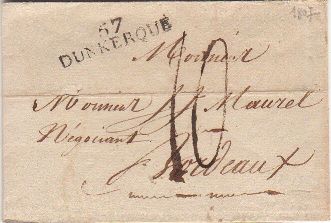 1807
57
DUNKERQUE
Monsieur
Monsieur JJ Maurel
Négociant
Bordeaux
10